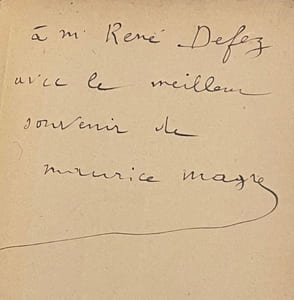 à m René Defez
avec le meilleur
souvenir de
maurice magre